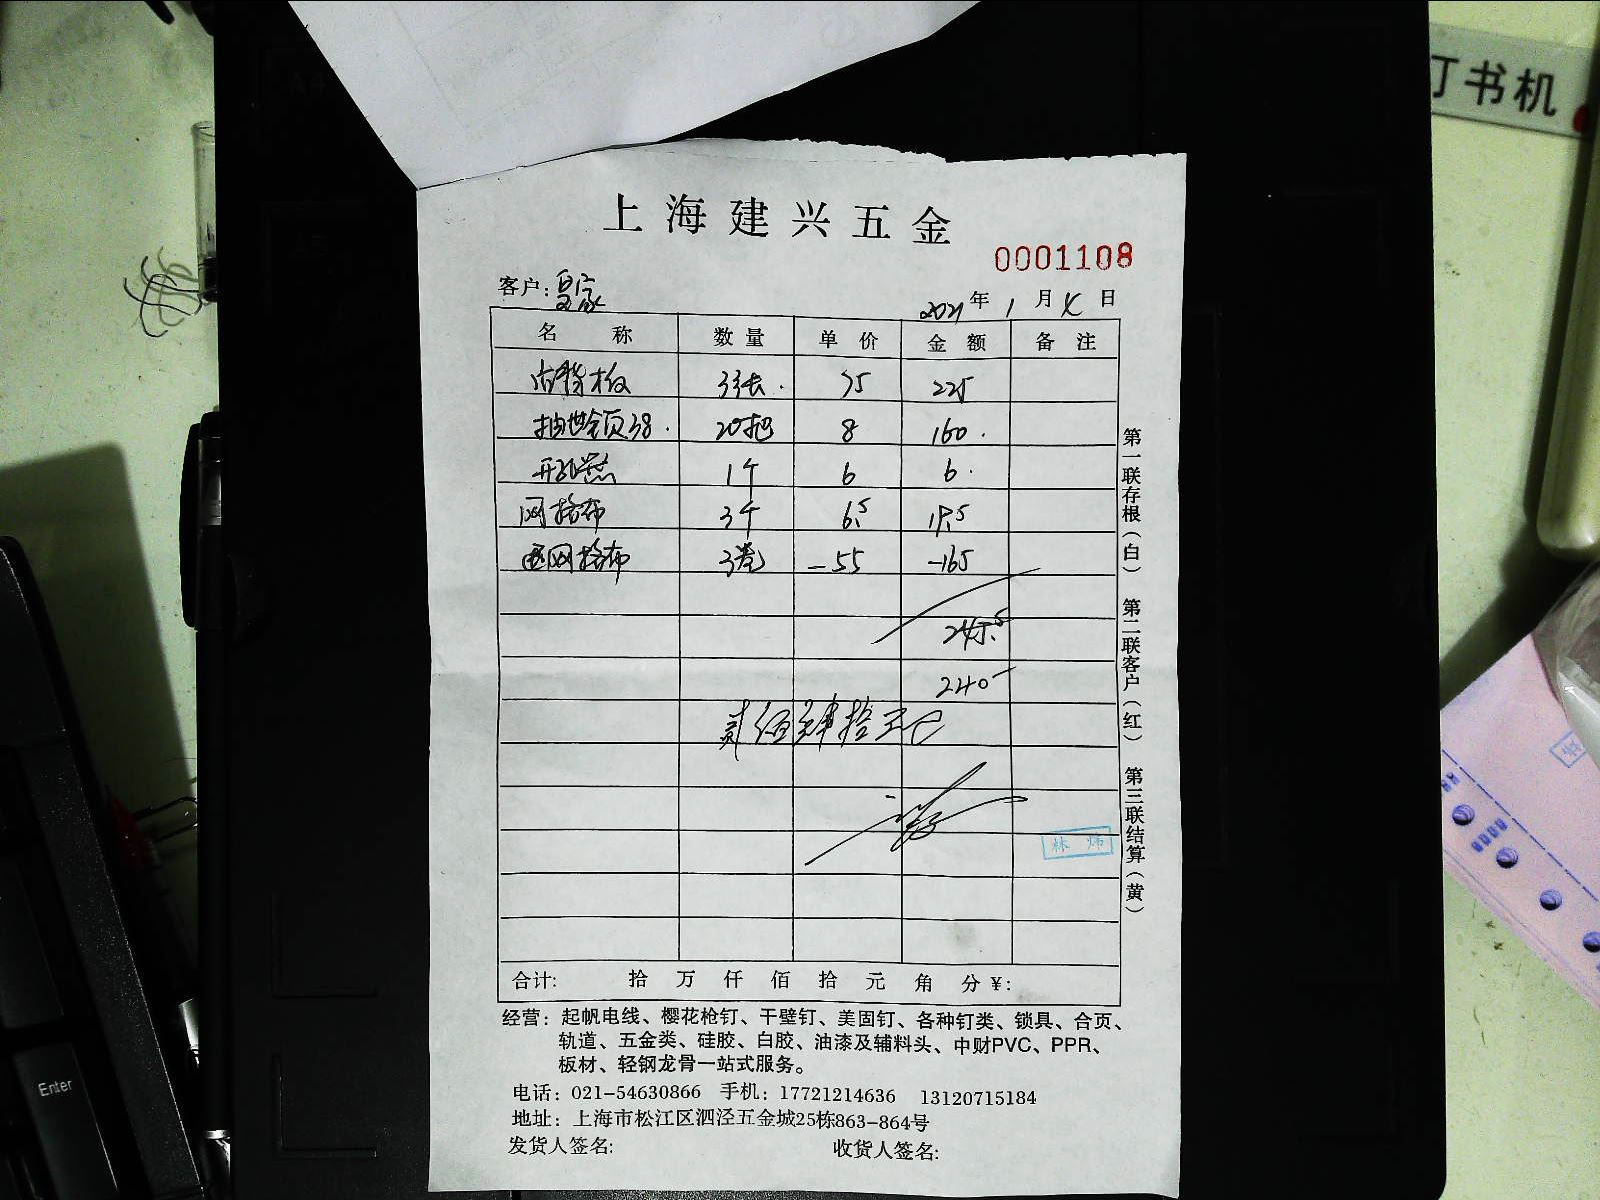 订书机
上海建兴五金
0001108
客户: 皇家
2021年 1月 日
名 称 数量 单价 金额 备注
板 3张 75 225
抽芯合页38 20把 8 160
开孔器 1个 6 6
网格布 3个 6.5 19.5
退网格布 3卷 -55 -165
245.5
240
贰佰肆拾元
林 炜
第一联存根(白) 第二联客户(红) 第三联结算(黄)
合计: 拾 万 仟 佰 拾 元 角 分 ¥:
经营: 起帆电线、樱花枪钉、干壁钉、美固钉、各种钉类、锁具、合页、
轨道、五金类、硅胶、白胶、油漆及辅料头、中财PVC、PPR、
板材、轻钢龙骨一站式服务。
电话: 021-54630866 手机: 17721214636 13120715184
地址: 上海市松江区泗泾五金城25栋863-864号
发货人签名: 收货人签名:
Enter